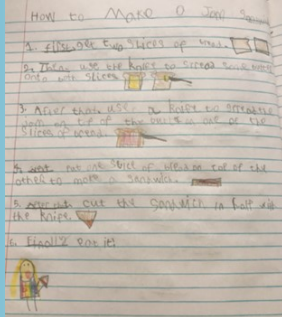 How to Make a Jam
1. First, get two slices of bread.
2. Then, use the knife to spread some
onto both slices
3. After that, use a knife to spread the
jam on top of the on one of the
slices of bread.
4. put one slice of bread on top of the
other to make a sandwich.
5. After that cut the sandwich in half
the knife.
6. Finally eat it!